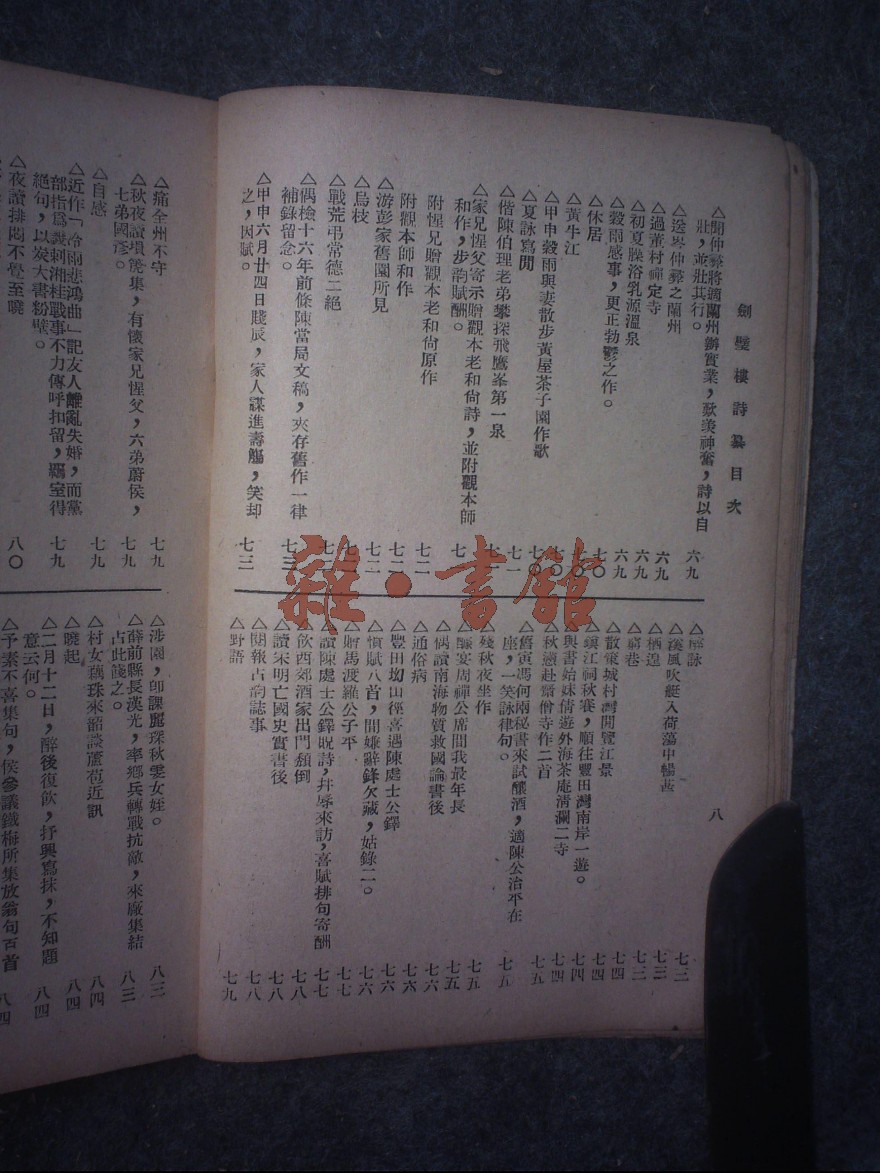 劍璧樓詩纂目次
八
△聞仲彝將適蘭州辦實業,歎羡神奮,詩以自
壯,並壯其行。 六九
△送岑仲彝之蘭州 六九
△過董村禪定寺 六九
△初夏臊浴乳源溫泉 六九
△穀雨感事,更正勃鬱之作。 七〇
△休居 七〇
△黃牛江 七〇
△甲申穀雨與妻散步黃屋茶子園作歌 七〇
△夏詠寫閒 七一
△偕陳伯理老弟攀探飛鷹峯第一泉
△家兄惺父寄示贈觀本老和尚詩,並附觀本師
和作,步韵賦酬。
附惺兄贈觀本老和尚原作 七二
附觀本師和作 七二
△游彭家舊園所見 七二
△烏枝
△戰荒弔常德二絕
△偶檢十六年前條陳當局文稿,夾存舊作一律
補錄留念。 七三
△甲申六月廿四日賤辰,家人謀進壽觴,笑却
之,因賦。 七三
詠 七三
△溪風吹艇入荷蕩中暢甚 七三
△栖遑 七三
△窮巷 七四
△散策城村灣閒覽江景 七四
△鎮江祠秋賽,順往豐田灣南岸一遊。 七四
△與書始妹倩遊外海茶庵清瀾二寺 七四
△秋懸赴齋僧寺作二首 七五
△舊寅馮何兩秘書來試釀酒,適陳公治平在
座,一笑詠律句。 七五
△殘秋夜坐作 七五
△釀宴周禪公席間我最年長 七五
△偶讀南海物質救國論書後 七六
△通俗病 七六
△豐田坳山徑喜遇陳處士公鐸 七六
△憤賦八首,間嫌辭鋒欠藏,姑錄二。 七六
△贈馬渡羅公子平 七七
△讀陳處士公鐸貺詩,幷辱來訪,喜賦排句寄酬 七七
△飲西郊酒家出門頹倒 七八
△讀宋明亡國史實書後 七八
△閱報占韵誌事 七八
△野語 七九
△痛全州不守 七九
△秋夜讀壎箎集,有懷家兄惺父,六弟蔚侯,
七弟國彥。 七九
△自感 七九
△近作「冷雨悲鴻曲」記友人離亂失婚,而黨
部指爲譏刺湘桂戰事不力傳呼扣留,羈室得
絕句,以炭大書粉壁。 七九
△夜讀排悶不覺至曉 八〇
△涉園,卽課麗琛秋雲女姪。 八三
△薛前縣長漢光,率鄉兵轉戰抗敵,來廠集結
占此餞之。 八三
△村女藕珠來韶談蘆苞近訊 八四
△曉起 八四
△二月十二日,醉後復飲,抒興寫抹,不知題
意云何。 八四
△予素不喜集句,侯參議鐵梅所集放翁句百首 八四
雜·書館